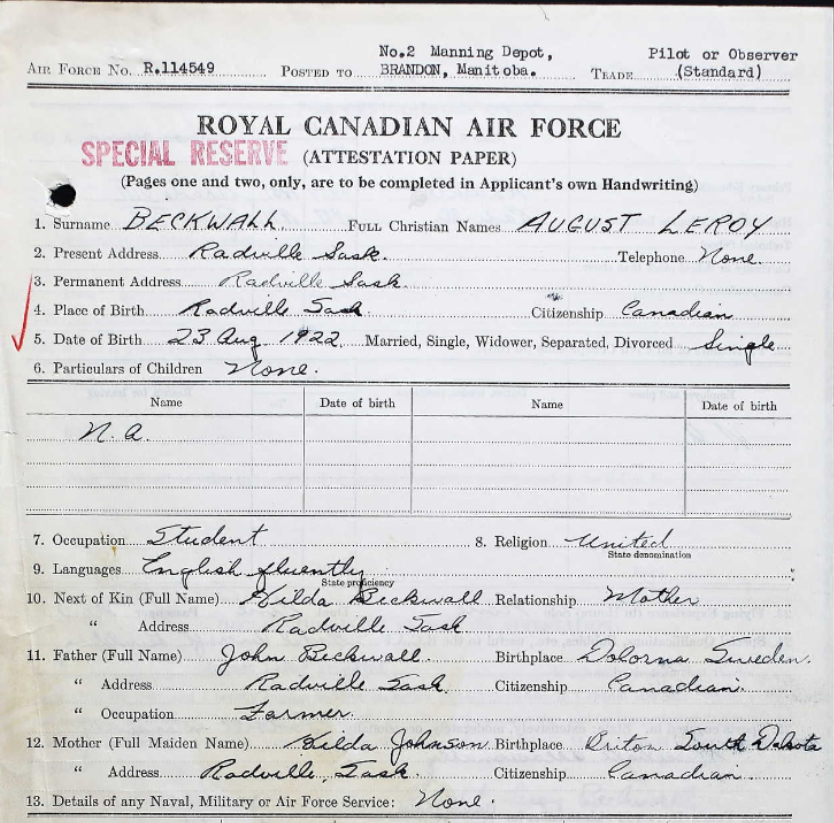 No.2 Manning Depot, Pilot or Observer
AIR FORCE No. R.114549 POSTED TO BRANDON, Manitoba. TRADE (Standard)
ROYAL CANADIAN AIR FORCE
SPECIAL RESERVE (ATTESTATION PAPER)
(Pages one and two, only, are to be completed in Applicant's own Handwriting)
1. Surname BECKWALL FULL Christian Names AUGUST LEROY
2. Present Address Radville Sask. Telephone None.
3. Permanent Address Radville Sask.
4. Place of Birth Radville Sask Citizenship Canadian
5. Date of Birth 23 Aug 1922. Married, Single, Widower, Separated, Divorced Single
6. Particulars of Children None.
Name Date of birth Name Date of birth
N.a.
7. Occupation Student 8. Religion United
State denomination
9. Languages English fluently
State proficiency
10. Next of Kin (Full Name) Hilda Beckwall Relationship Mother
" Address Radville Sask
11. Father (Full Name) John Beckwall. Birthplace Dolorna Sweden.
" Address Radville Sask. Citizenship Canadian.
" Occupation Farmer.
12. Mother (Full Maiden Name) Hilda Johnson Birthplace Briton South Dakota
" Address Radville, Sask. Citizenship Canadian.
13. Details of any Naval, Military or Air Force Service: None.